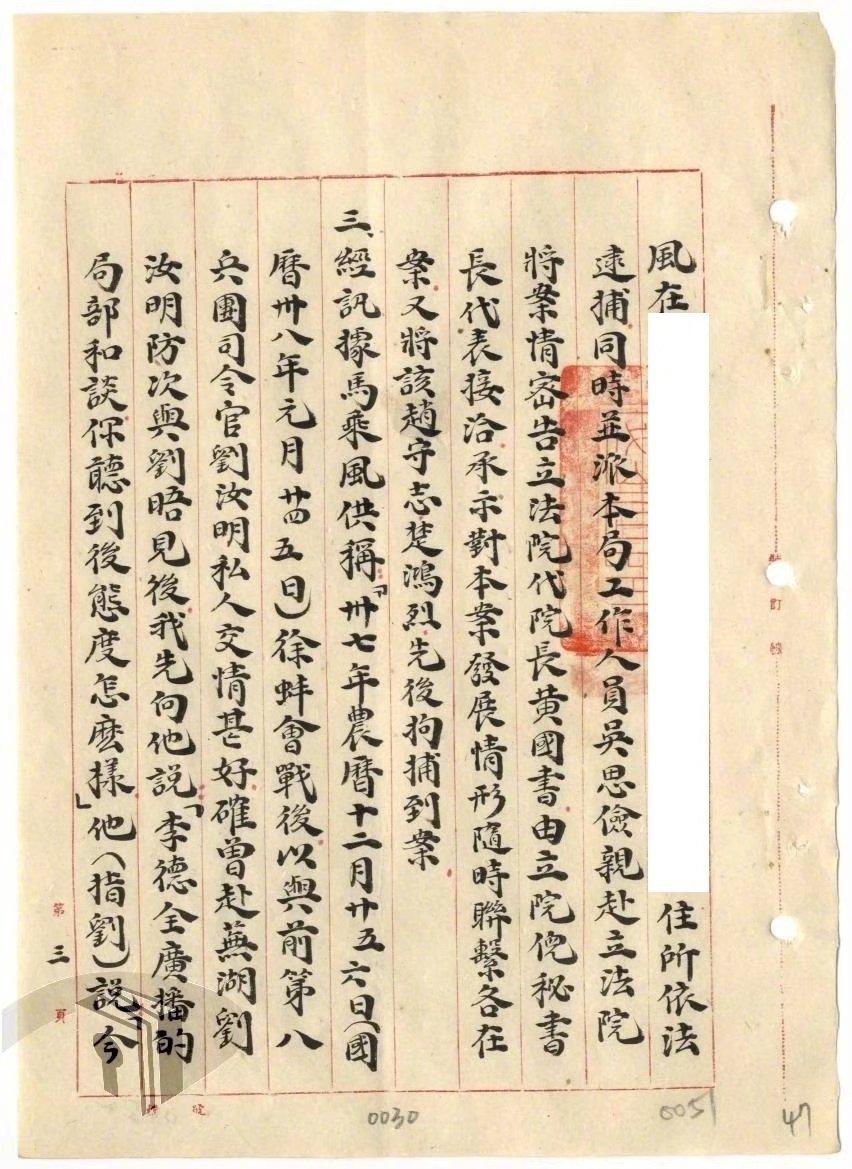 風在
住所依法
逮捕同時並派本局工作人員吳思儉親赴立法院
將案情密告立法院代院長黃國書由立院倪秘書
長代表接洽承示對本案發展情形隨時聯繫各在
案又將該趙守志楚鴻烈先後拘捕到案
三、經訊據馬乘風供稱「卅七年農曆十二月廿五六日(國
曆卅八年元月廿四五日)徐蚌會戰後以與前第八
兵團司令官劉汝明私人交情甚好確曾赴蕪湖劉
汝明防次與劉晤見後我先向他說「李德全廣播的
局部和談你聽到後態度怎麼樣」他(指劉)說「今
第三頁
訂
0030
0051
47